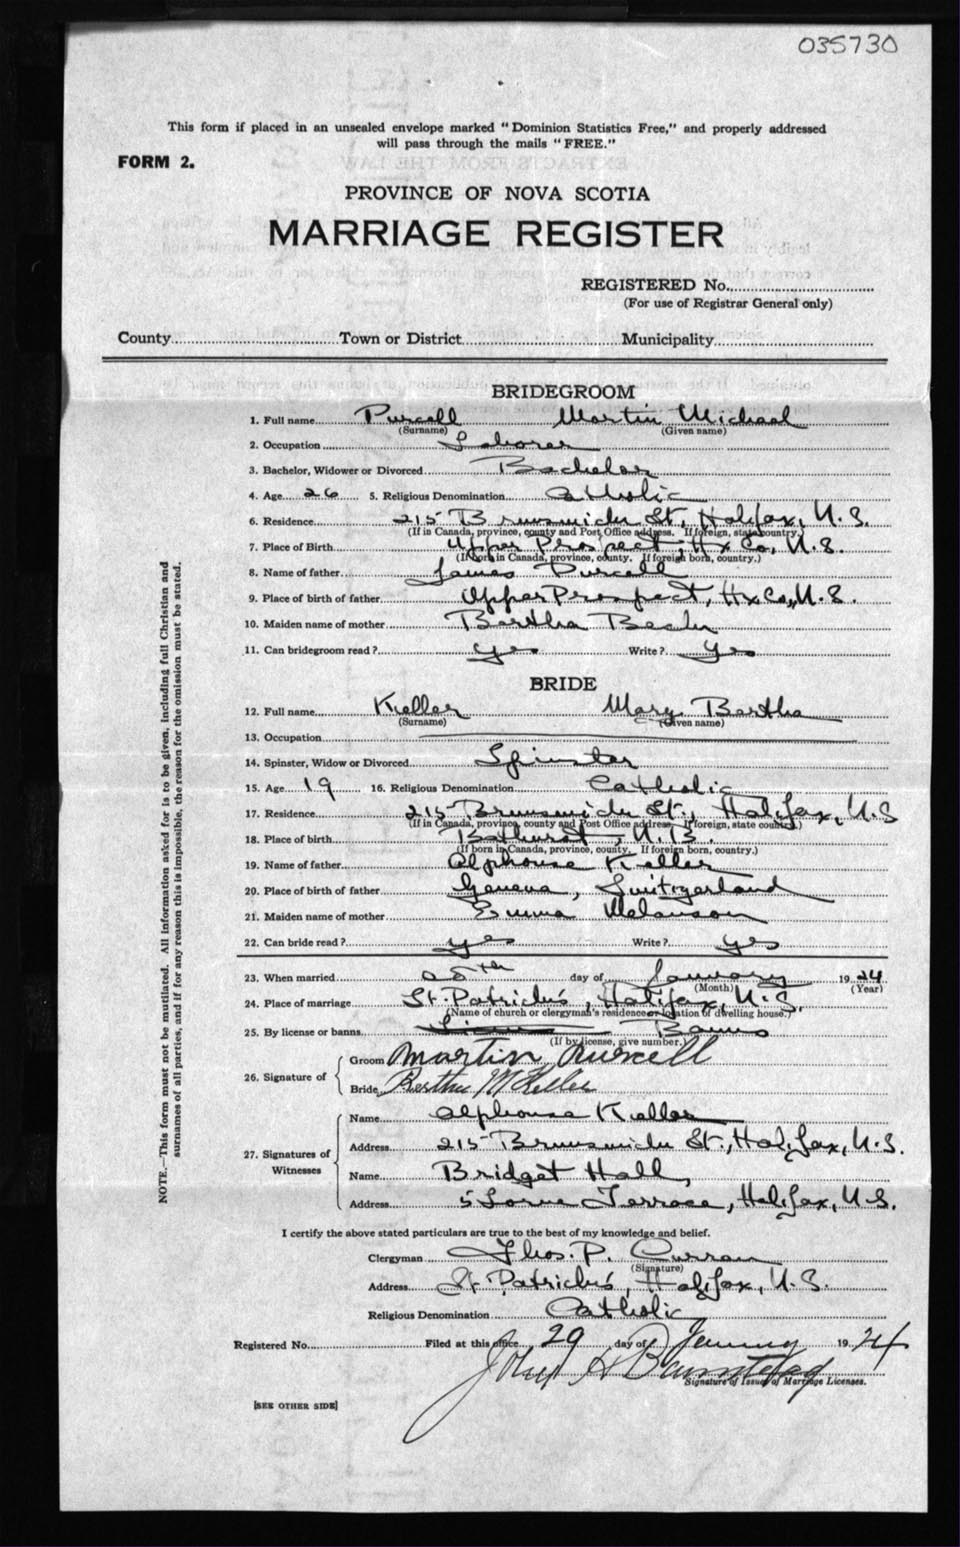 035730
This form if placed in an unsealed envelope marked "Dominion Statistics Free," and properly addressed
will pass through the mails "FREE."
FORM 2.
PROVINCE OF NOVA SCOTIA
MARRIAGE REGISTER
REGISTERED No.
(For use of Registrar General only)
County Town or District Municipality
BRIDEGROOM
1. Full name Purcell Martin Michael
(Surname) (Given name)
2. Occupation Laborer
3. Bachelor, Widower or Divorced Bachelor
4. Age 26 5. Religious Denomination Catholic
6. Residence 215 Brunswick St, Halifax, N.S.
(If in Canada, province, county and Post Office address. If foreign, state country.)
7. Place of Birth Upper Prospect, Hx Co, N.S.
(If born in Canada, province, county. If foreign born, country.)
8. Name of father James Purcell
9. Place of birth of father Upper Prospect, Hx Co, N.S.
10. Maiden name of mother Bertha
11. Can bridegroom read? yes Write? yes
BRIDE
12. Full name Keller Mary Bertha
(Surname) (Given name)
13. Occupation
14. Spinster, Widow or Divorced Spinster
15. Age 19 16. Religious Denomination Catholic
17. Residence 215 Brunswick St, Halifax, N.S
(If in Canada, province, county and Post Office address. If foreign, state country.)
18. Place of birth Bathurst, N.B.
(If born in Canada, province, county. If foreign born, country.)
19. Name of father Alphonse Keller
20. Place of birth of father Geneva, Switzerland
21. Maiden name of mother Emma Melanson
22. Can bride read? yes Write? yes
23. When married 28th day of January 1924
(Month) (Year)
24. Place of marriage St. Patrick's, Halifax, N.S.
(Name of church or clergyman's residence or location of dwelling house.)
25. By license or banns Banns
(If by license, give number.)
26. Signature of
Groom Martin Purcell
Bride Bertha M Keller
27. Signatures of Witnesses
Name Alphonse Keller
Address 215 Brunswick St., Halifax, N.S.
Name Bridget Hall,
Address 5 Lorne Terrace, Halifax, N.S.
I certify the above stated particulars are true to the best of my knowledge and belief.
Clergyman Thos. P. Curran
(Signature)
Address St. Patrick's, Halifax, N.S.
Religious Denomination Catholic
Registered No. Filed at this office 29 day of January 1924
John H Barnstead
Signature of Issuer of Marriage Licenses.
[SEE OTHER SIDE]
NOTE.—This form must not be mutilated. All information asked for is to be given, including full Christian and
surnames of all parties, and if for any reason this is impossible, the reason for the omission must be stated.